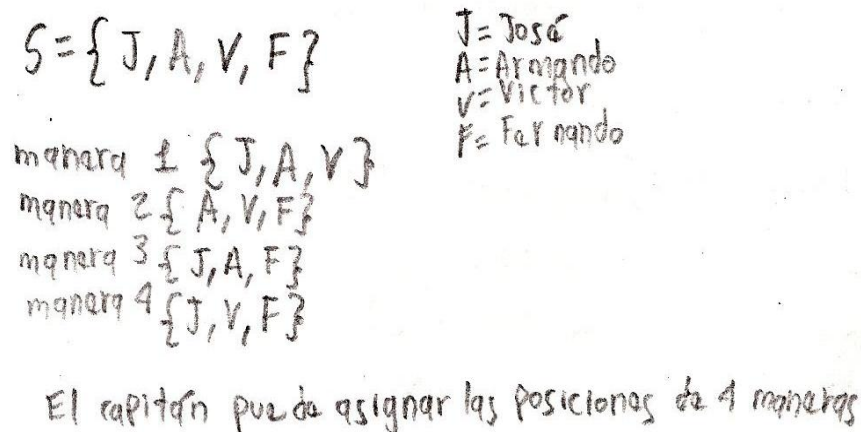 S={J, A, V, F}
J= José
A= Armando
V= Victor
F= Fernando
manera 1 {J, A, V}
manera 2 {A, V, F}
manera 3 {J, A, F}
manera 4 {J, V, F}
El capitán puede asignar las posiciones de 4 maneras